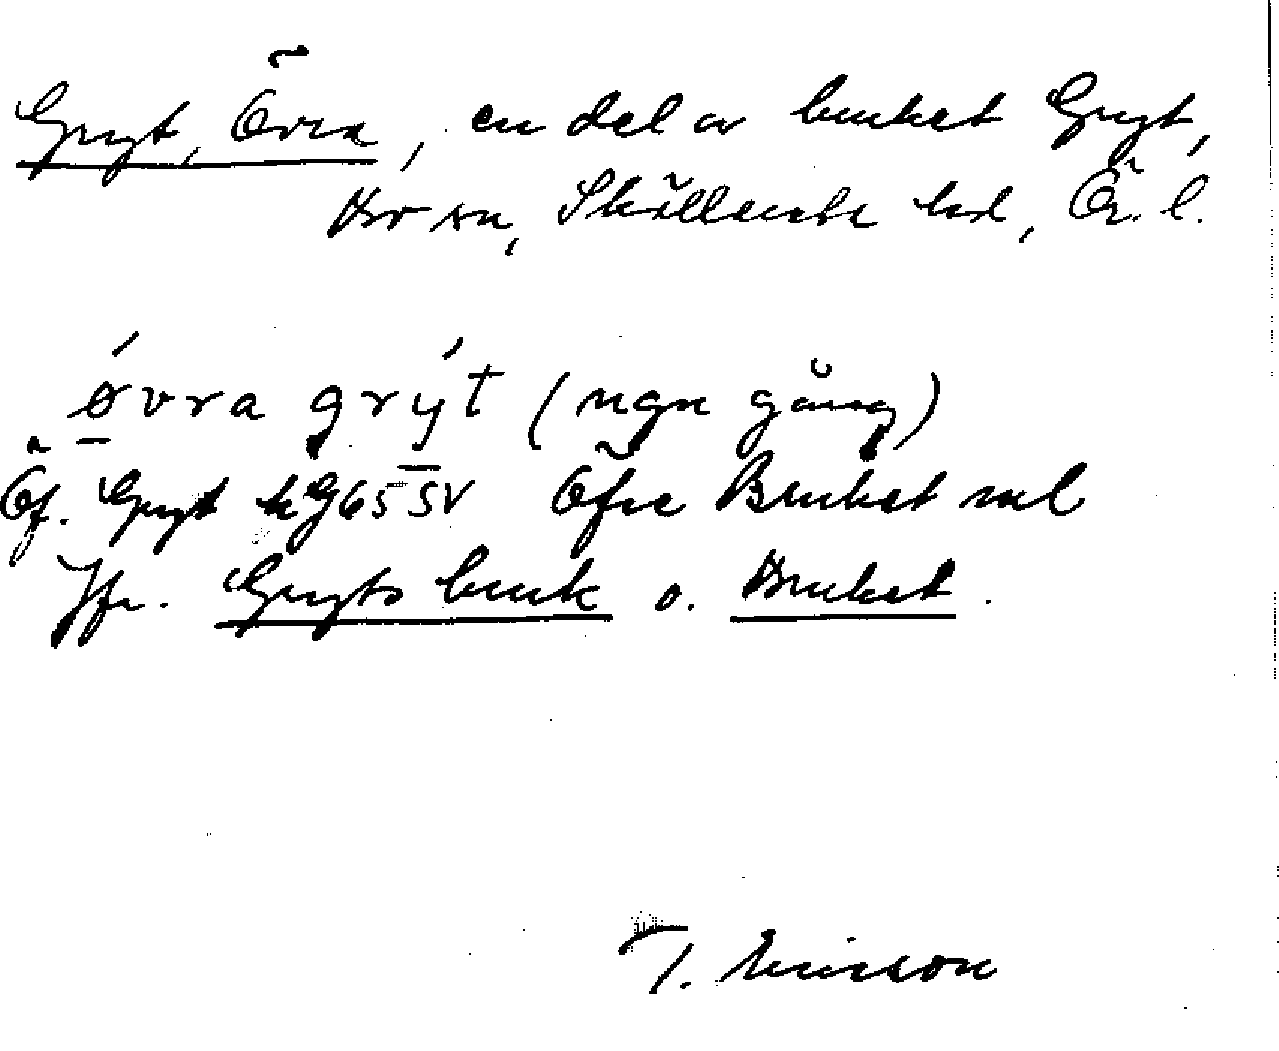 Gryt, Övra, en del av bruket Gryt,
Hov sn, Skällvik hd, Ög. l.
øvra grýt (ngn gång)
Öf. Gryt kg 65 SV Öfre Bruket ml
Jfr. Gryts bruk o. Bruket.
T. Ericsson